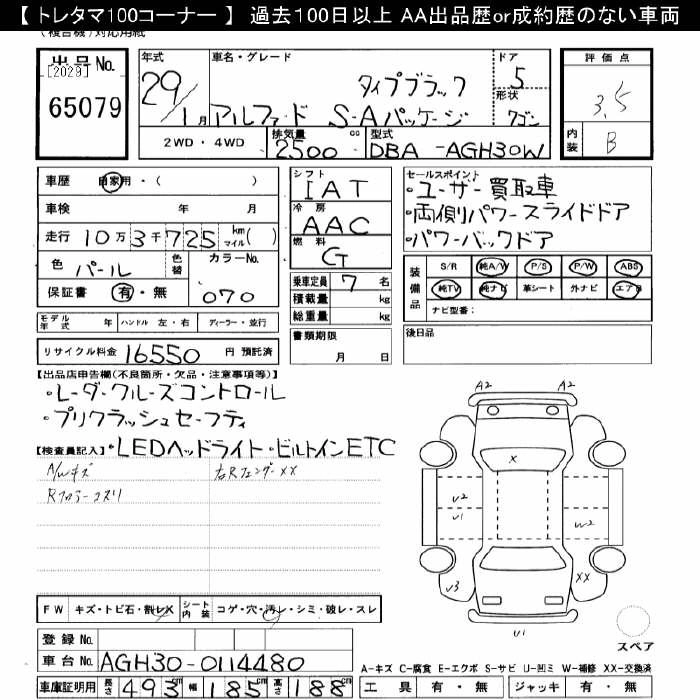 【 トレタマ100コーナー 】 過去100日以上 AA出品歴or成約歴のない車両
(複合機)対応用紙
出品No.
[2029]
65079
年式 29 / 1月
車名・グレード タイプブラック
アルファード S-Aパッケージ
ドア 5
形状 ワゴン
2WD・4WD 排気量 2500 cc 型式 DBA -AGH30W
評価点 3.5
内装 B
車歴 自家用・( )
車検 年 月
走行 10万3千725 km マイル( )
色 パール 色替 カラーNo. 070
保証書 有・無
モデル年式 年 ハンドル 左・右 ディーラー・並行
リサイクル料金 16550 円 預託済
シフト IAT
冷房 AAC
燃料 G
乗車定員 7 名
積載量 kg
総重量 kg
書類期限 月 日
セールスポイント
・ユーザー買取車
・両側パワースライドドア
・パワーバックドア
装備品
S/R 純A/W P/S P/W ABS
純TV 純ナビ 革シート 外ナビ エアB
ナビ型番:
後日品
【出品店申告欄(不良箇所・欠品・注意事項等)】
・レーダークルーズコントロール
・プリクラッシュセーフティ
【検査員記入】・LEDヘッドライト・ビルトインETC
A/Wキズ 右Rフェンダー XX
Rフロアーコスリ
A2 A2
X
U2
U1
W2
U3
XX
U1
スペア
FW キズ・トビ石・割レX シート内装 コゲ・穴・汚レ・シミ・破レ・スレ
登録No.
車台No. AGH30-0114480
車庫証明用 長さ 493cm 幅 185cm 高さ 188cm
A-キズ C-腐食 E-エクボ S-サビ U-凹ミ W-補修 XX-交換済
工具 有・無 ジャッキ 有・無